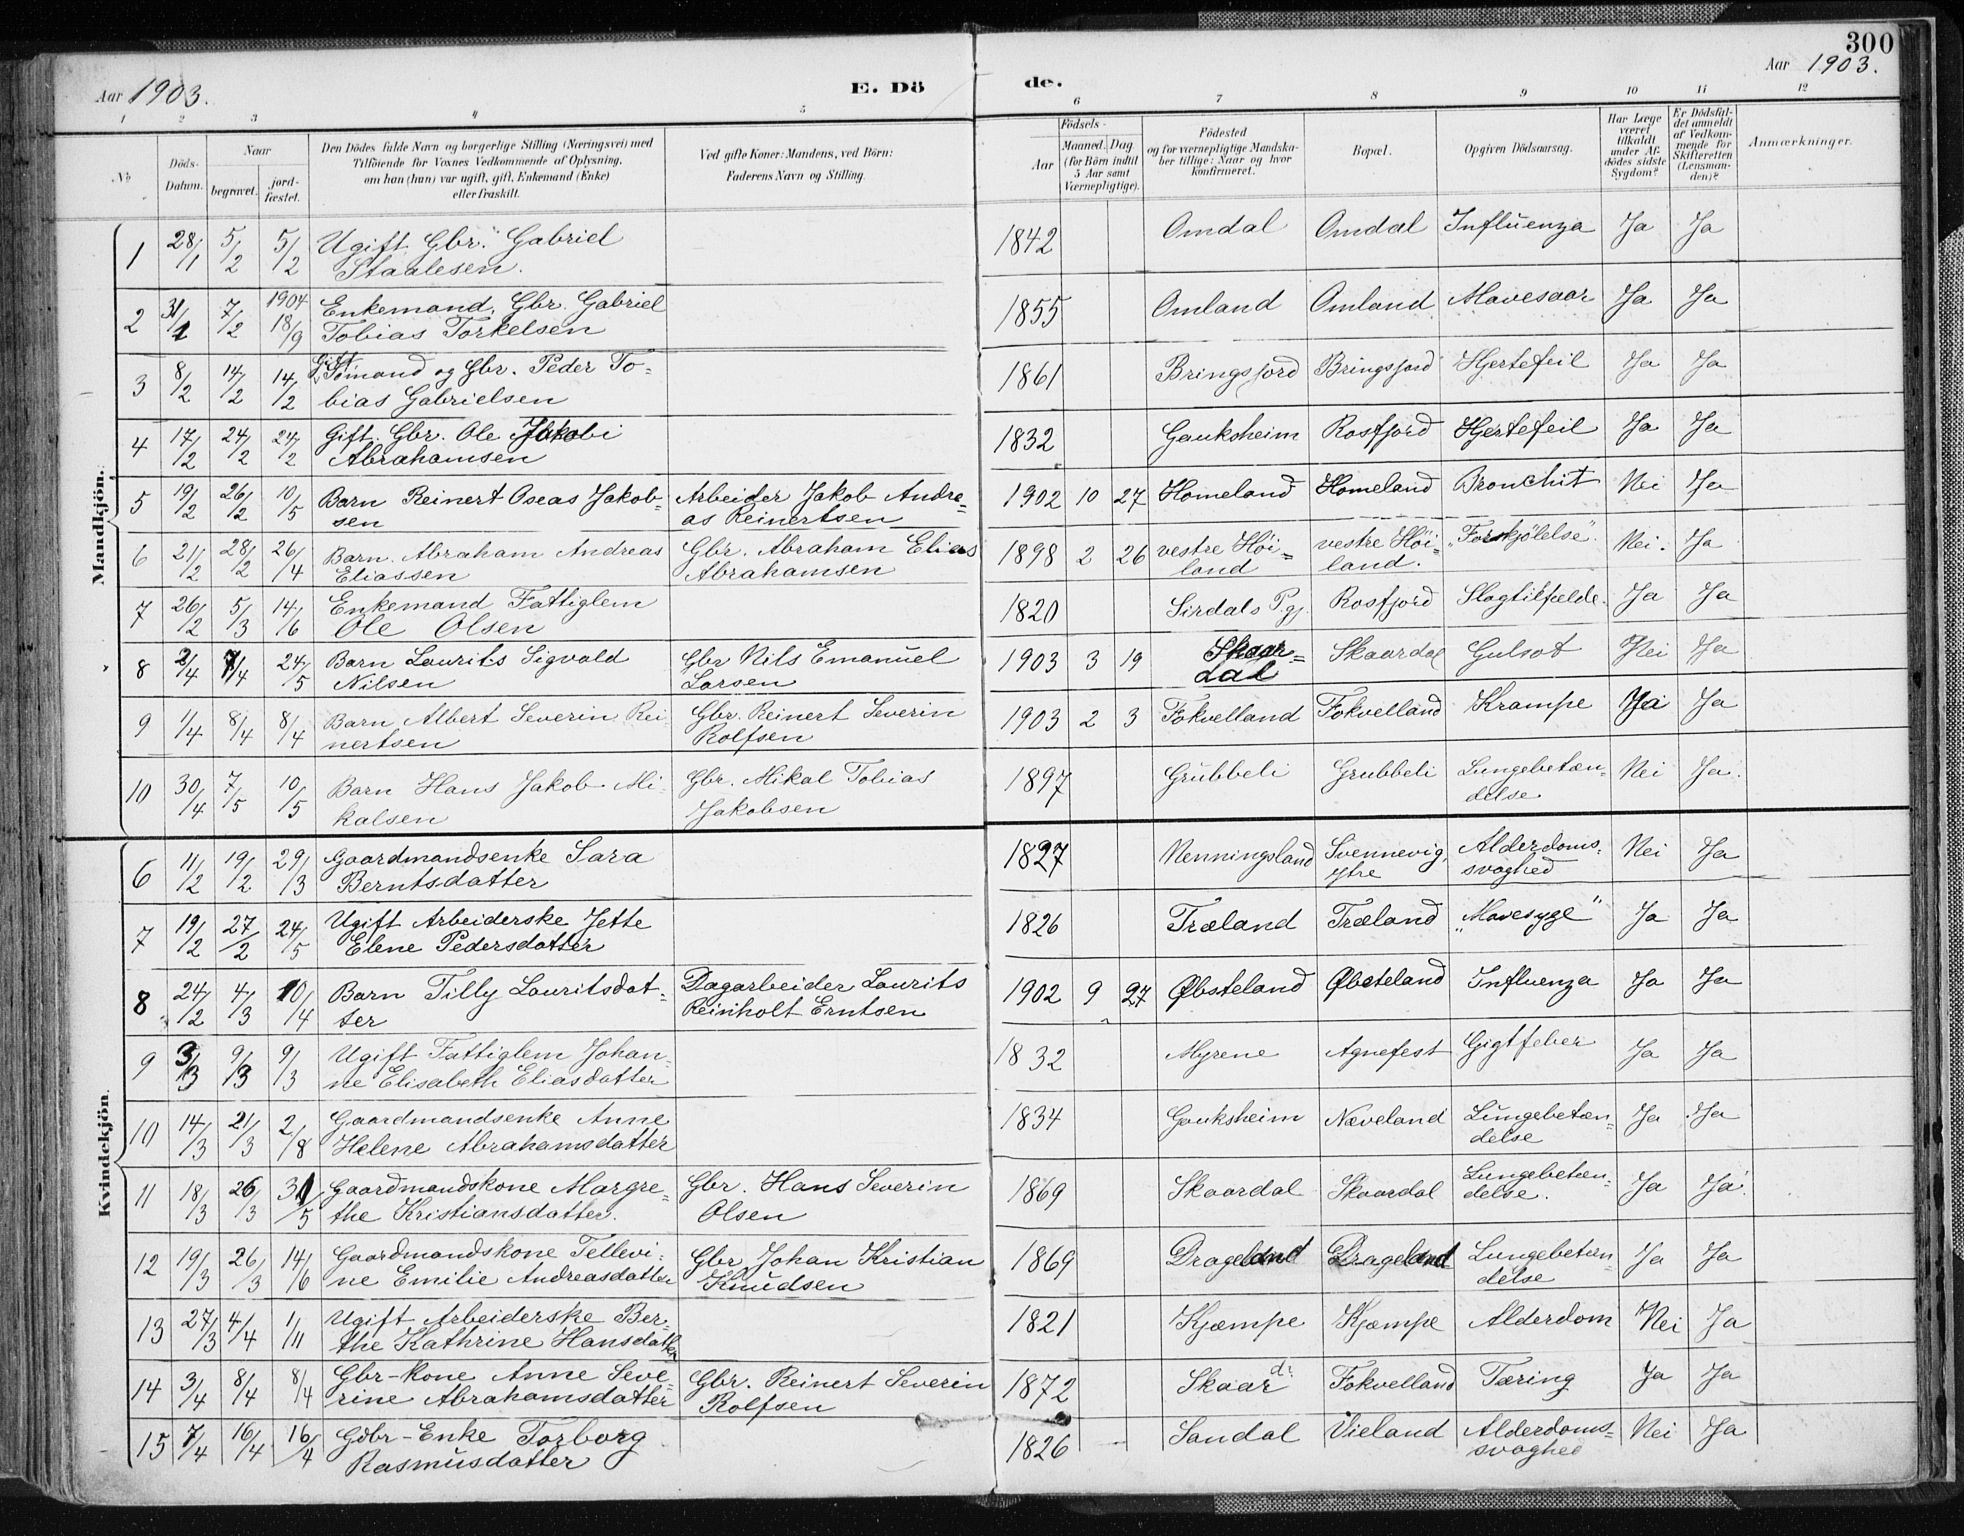 300
Aar 1903.
E. Dö
de.
Aar 1903.
1 2 3 4 5 6 7 8 9 10 11 12
No
Döds-Datum.
Naar
begravet.
jord-fæstet.
Den Dödes fulde Navn og borgerlige Stilling (Næringsvei) med
Tilföiende for Voxnes Vedkommende af Oplysning,
om han (hun) var ugift, gift, Enkemand (Enke)
eller fraskilt.
Ved gifte Koner: Mandens, ved Börn:
Faderens Navn og Stilling.
Födsels-
Aar
Maaned. Dag
(for Börn indtil
5 Aar samt
Værnepligtige).
Födested
og for værnepligtige Mandska-
ber tillige: Naar og hvor
konfirmeret.
Bopæl.
Opgiven Dödsaarsag.
Har Læge
været
tilkaldt
under Af-
dödes sidste
Sygdom?
Er Dödsfal-
det anmeldt
af Vedkom-
mende for
Skifteretten
(Lensman-
den)?
Anmærkninger.
Mandkjön.
1 28/1 5/2 5/2 Ugift Gbr. Gabriel 1842 Omdal Omdal Influenza Ja Ja
Staalesen.
2 31/1 7/2 1904 18/9 Enkemand, Gbr. Gabriel 1855 Omland Omland Mavesaar Ja Ja
Tobias Torkelsen
3 8/2 14/2 14/2 Gift Sømand og Gbr. Peder To- 1861 Bringsjord Bringsjord Hjertefeil Ja Ja
bias Gabrielsen
4 17/2 24/2 24/2 Gift. Gbr. Ole Jakobi 1832 Gauksheim Rosfjord Hjertefeil Ja Ja
Abrahamsen
5 19/2 26/2 10/5 Barn Reinert Oseas Jakob- Arbeider Jakob Andre- 1902 10 27 Homeland Homeland Bronchit Nei Ja
sen as Reinertsen
6 21/2 28/2 26/4 Barn. Abraham Andreas Gbr. Abraham Elias 1898 2 26 vestre Høi- vestre Høi- „Forkjølelse“. Nei. Ja
Eliassen Abrahamsen land land.
7 26/2 5/3 14/6 Enkemand Fattiglem 1820 Sirdals P.gj. Rosfjord Slagtilfælde. Ja Ja
Ole Olsen
8 2/4 7/4 24/5 Barn Laurits Sigvald Gbr Nils Emanuel 1903 3 19 Skaar- Skaardal Gulsot Nei Ja
Nilsen Larsen dal
9 1/4 8/4 8/4 Barn Albert Severin Rei Gbr. Reinert Severin 1903 2 3 Fokvelland Fokvelland Krampe Ja Ja
nertsen Rolfsen
10 30/4 7/5 10/5 Barn Hans Jakob Mi- Gbr. Mikal Tobias 1897 Grubbeli Grubbeli Lungebetæn- Nei Ja.
kalsen Jakobsen delse
Kvindekjön.
6 11/2 19/2 29/3 Gaardmandsenke Sara 1827 Nenningsland Svennevig, Alderdoms- Nei Ja
Berntsdatter ytre svaghed
7 19/2 27/2 24/5 Ugift Arbeiderske Jette 1826 Træland Træland „Mavesyge“ Ja Ja
Elene Pedersdatter
8 24/2 4/3 10/4 Barn Tilly Lauritsdat- Dagarbeider Laurits 1902 9 27 Øbsteland Øbsteland Influenza Ja Ja
ter Reinholt Erntsen
9 3/3 9/3 9/3 Ugift Fattiglem Johan- 1832 Myrene Agnefest Gigtfeber Ja Ja
ne Elisabeth Eliasdatter
10 14/3 21/3 2/8 Gaardmandsenke Anne 1834 Gauksheim Næveland Lungebetæn- Ja Ja
Helene Abrahamsdatter delse
11 18/3 26/3 31/5 Gaardmandskone Margre- Gbr. Hans Severin 1869 Skaardal Skaardal Lungebetæn- Ja Ja
the Kristiansdatter. Olsen delse.
12 19/3 26/3 14/6 Gaardmandskone Tellevi- Gbr Johan Kristian 1869 Drageland Drageland Lungebetæn- Ja Ja
ne Emilie Andreasdatter Knudsen delse
13 27/3 4/4 1/11 Ugift Arbeiderske Ber- 1821 Kjæmpe Kjæmpe Alderdom Nei Ja
the Kathrine Hansdatter
14 3/4 8/4 8/4 Gbr-kone Anne Seve- Gbr. Reinert Severin 1872 Skaar d. Fokvelland Tæring Ja Ja
rine Abrahamsdatter Rolfsen
15 7/4 16/4 16/4 Gdbr-Enke Torborg 1826 Sandal Vieland Alderdoms- Nei Ja
Rasmusdatter svaghed